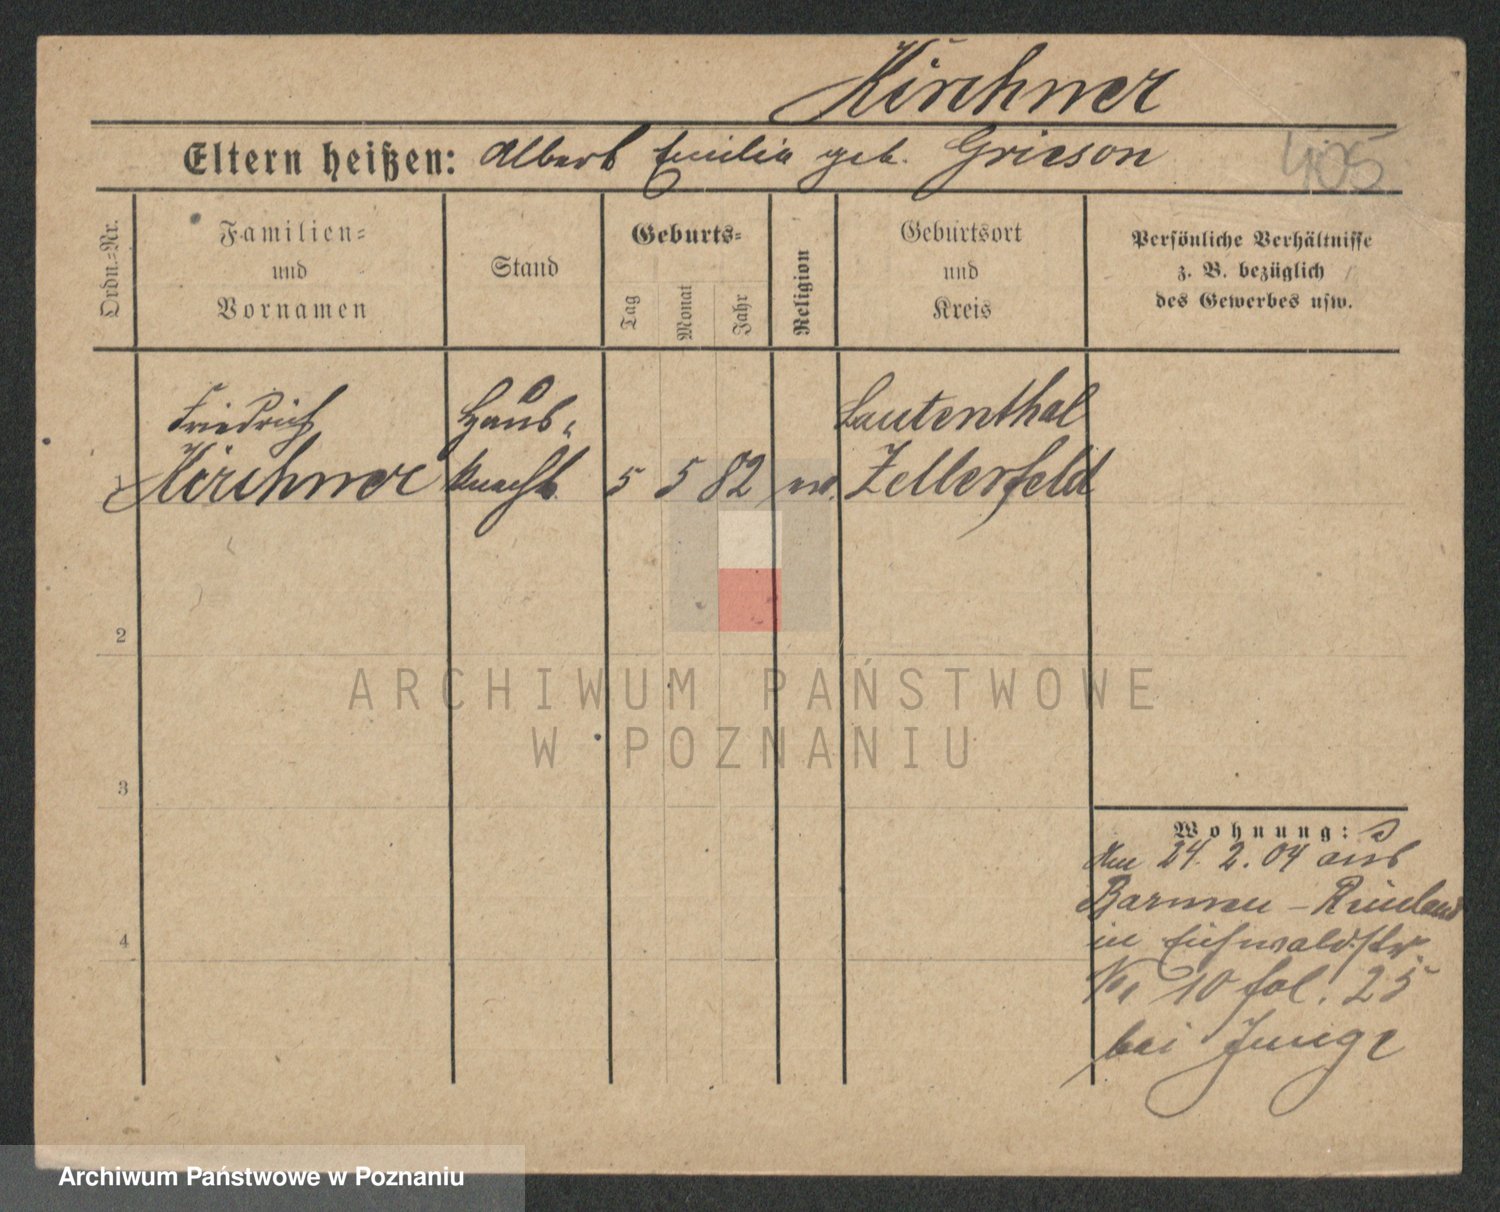 Kirchner
Eltern heißen: Albert Emilia geb. Grieson
405
Ordn.-Nr.
Familien-
und
Vornamen
Stand
Geburts-
Tag
Monat
Jahr
Religion
Geburtsort
und
Kreis
Persönliche Verhältnisse
z. B. bezüglich
des Gewerbes usw.
Friedrich Haus- Lautenthal
1 Kirchner knecht 5 5 82 ev. Zellerfeld
2
3
4
ARCHIWUM PAŃSTWOWE
W POZNANIU
Wohnung:
24. 2. 04 aus
Barmen - Rheinland
in Eichwaldstr.
No 10 fol. 25
bei Junge
Archiwum Państwowe w Poznaniu